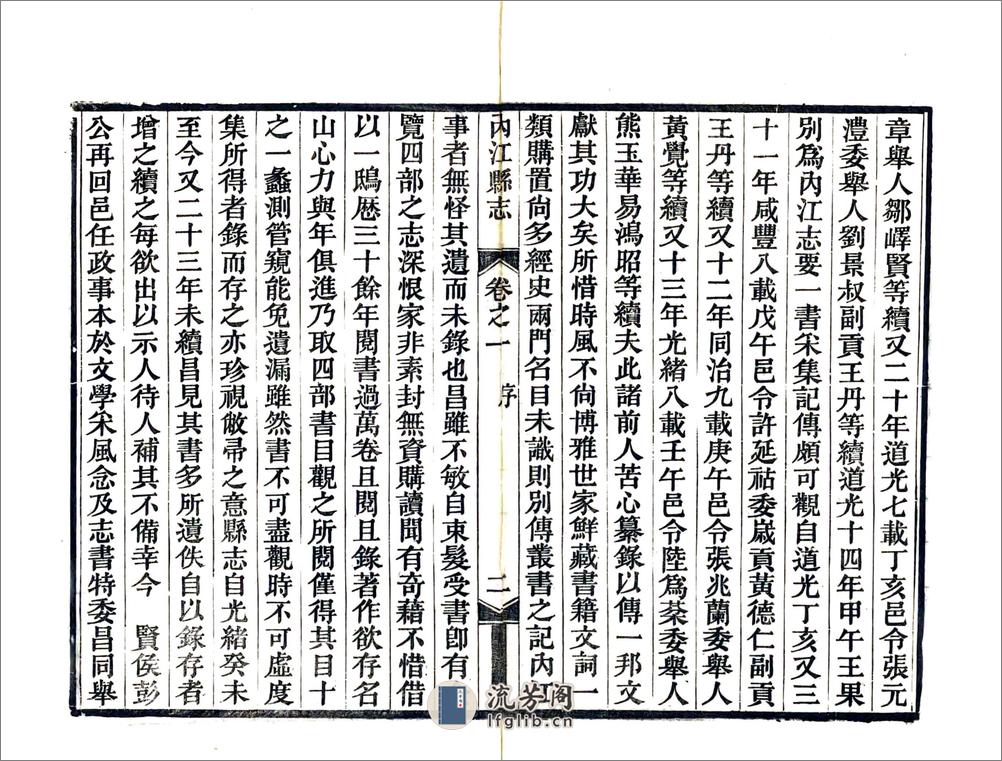 章舉人鄒嶧賢等續又二十年道光七載丁亥邑令張元
澧委舉人劉景叔副貢王丹等續道光十四年甲午王果
別為內江志要一書宋集記傳頗可觀自道光丁亥又三
十一年咸豐八載戊午邑令許延祜委嵗貢黃德仁副貢
王丹等續又十二年同治九載庚午邑令張兆蘭委舉人
黃覺等續又十三年光緒八載壬午邑令陸為棻委舉人
熊玉華易鴻昭等續夫此諸前人苦心纂錄以傳一邦文
獻其功大矣所惜時風不尙博雅世家鮮藏書籍文詞一
類購置尙多經史兩門名目未識則別傳叢書之記內江
內江縣志 卷之一 序 二
事者無怪其遺而未錄也昌雖不敏自束髮受書卽有
覽四部之志深恨家非素封無資購讀聞有奇藉不惜借
以一鴟厯三十餘年閱書過萬卷且閱且錄著作欲存名
山心力與年俱進乃取四部書目觀之所閱僅得其目十
之一蠡測管窺能免遺漏雖然書不可盡觀時不可虛度
集所得者錄而存之亦珍視敝帚之意縣志自光緒癸未
至今又二十三年未續昌見其書多所遺佚自以錄存者
增之續之每欲出以示人待人補其不備幸今 賢侯彭
公再回邑任政事本於文學宋風念及志書特委昌同舉
流芳阁
lfglib.cn